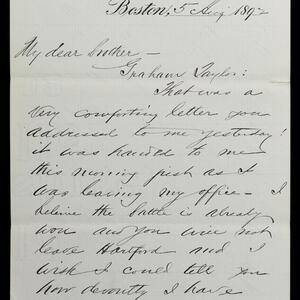 Boston, 5 Aug 1892
My dear brother —
Graham Taylor:
That was a
very comforting letter you
addressed to me yesterday!
it was handed to me
this morning just as I
was leaving my office — I
believe the battle is already
won and you will not
leave Hartford and I
wish I could tell you
how devoutly I have